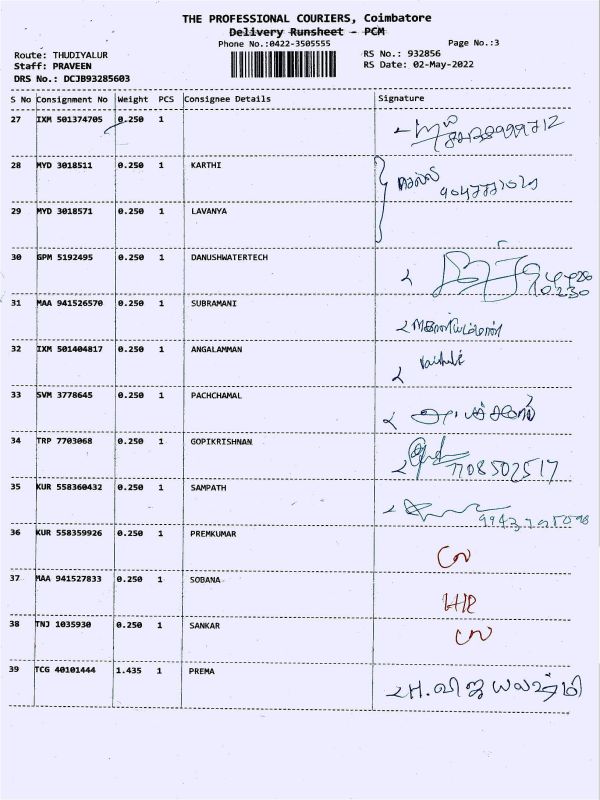 THE PROFESSIONAL COURIERS, Coimbatore
Delivery Runsheet - PCM
Phone No.:0422-3505555
Page No.:3
Route: THUDIYALUR
RS No.: 932856
Staff: PRAVEEN
RS Date: 02-May-2022
DRS No.: DCJB93285603
S No Consignment No Weight PCS Consignee Details Signature
27 IXM 501374705 0.250 1
28 MYD 3018511 0.250 1 KARTHI
29 MYD 3018571 0.250 1 LAVANYA
30 GPM 5192495 0.250 1 DANUSHWATERTECH
31 MAA 941526570 0.250 1 SUBRAMANI
32 IXM 501404817 0.250 1 ANGALAMMAN
33 SVM 3778645 0.250 1 PACHCHAMAL
34 TRP 7703068 0.250 1 GOPIKRISHNAN 7708502517
35 KUR 558360432 0.250 1 SAMPATH
36 KUR 558359926 0.250 1 PREMKUMAR
37 MAA 941527833 0.250 1 SOBANA
38 TNJ 1035930 0.250 1 SANKAR
39 TCG 40101444 1.435 1 PREMA